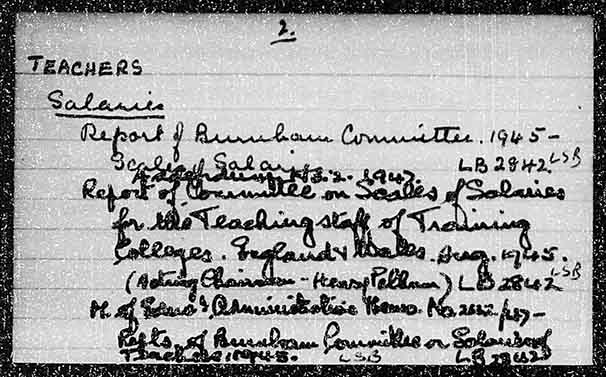 2.
TEACHERS
Salaries
Report of Burnham Committee. 1945 -
Scale of Salaries LB 2842 LSB
Addendum 1947.
Report of Committee on Scales of Salaries
for the Teaching staff of Training
Colleges. England & Wales. Aug. 1945.
(Acting Chairman - Henry Pelham) LB 2842 LSB
M. of Educ. Administrative Memo. No.
Repts. of Burnham Committee on Salaries of
Teachers, 1945. LSB LB 2842